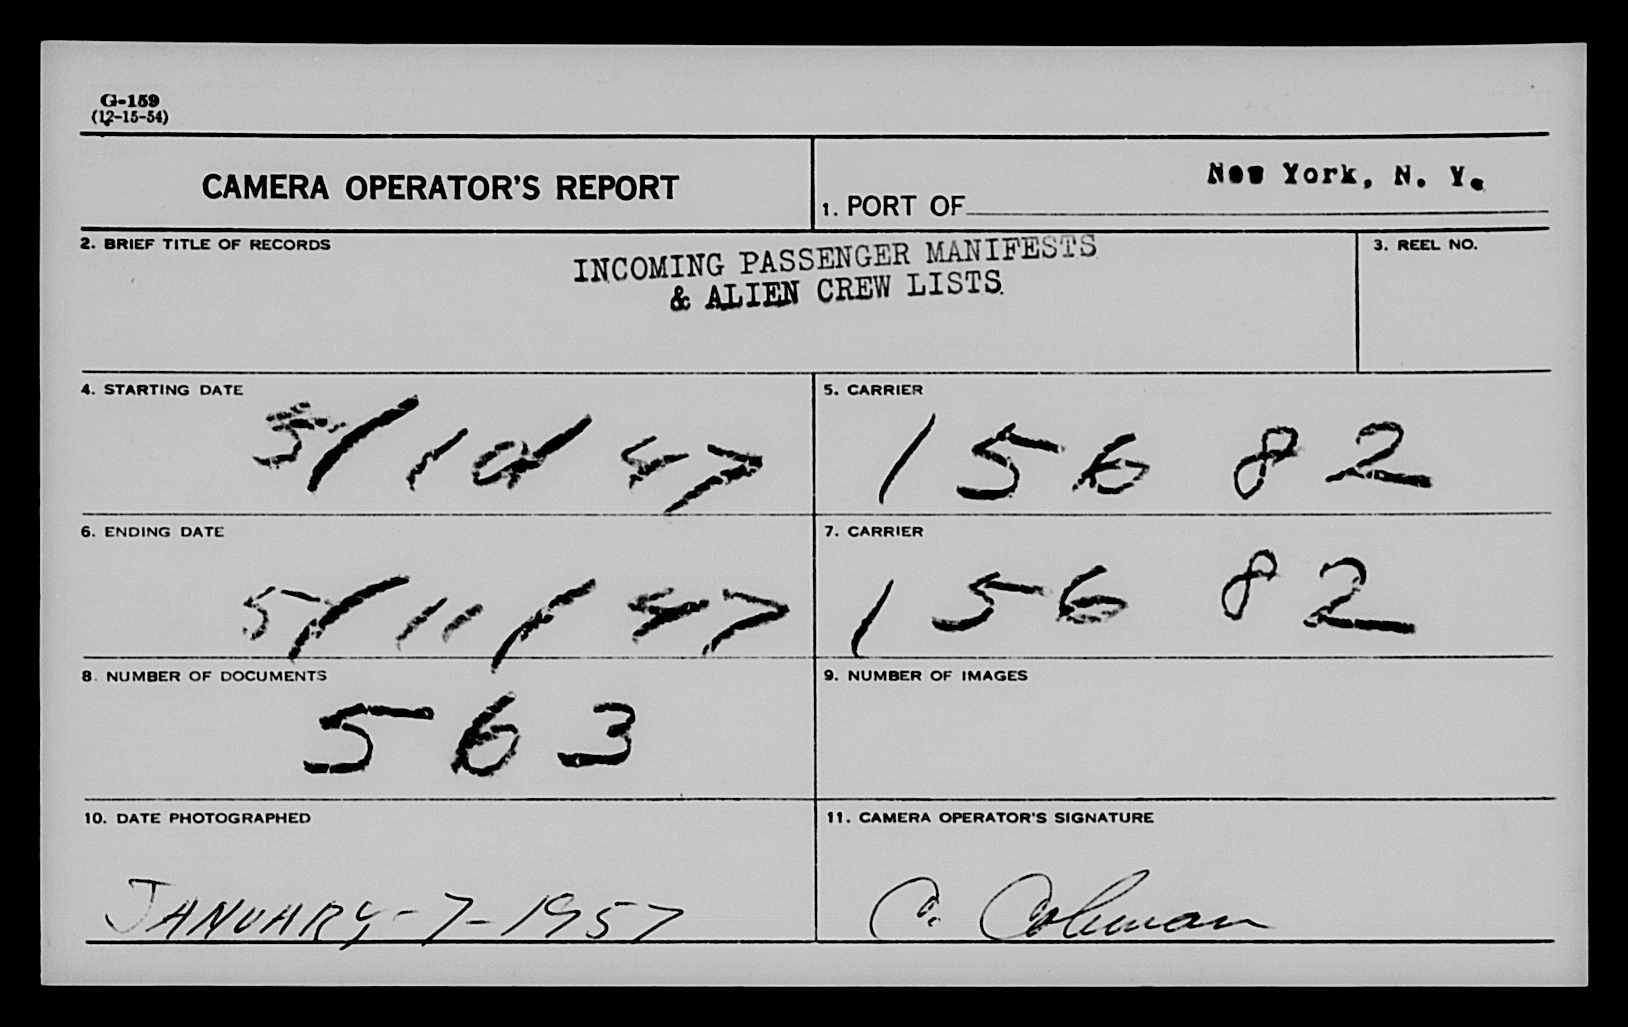 G-159
(12-15-54)
CAMERA OPERATOR'S REPORT
1. PORT OF New York, N. Y.
2. BRIEF TITLE OF RECORDS
INCOMING PASSENGER MANIFESTS
& ALIEN CREW LISTS
3. REEL NO.
4. STARTING DATE
5/10/47
5. CARRIER
15682
6. ENDING DATE
5/11/47
7. CARRIER
15682
8. NUMBER OF DOCUMENTS
563
9. NUMBER OF IMAGES
10. DATE PHOTOGRAPHED
JANUARY-7-1957
11. CAMERA OPERATOR'S SIGNATURE
C. Coleman